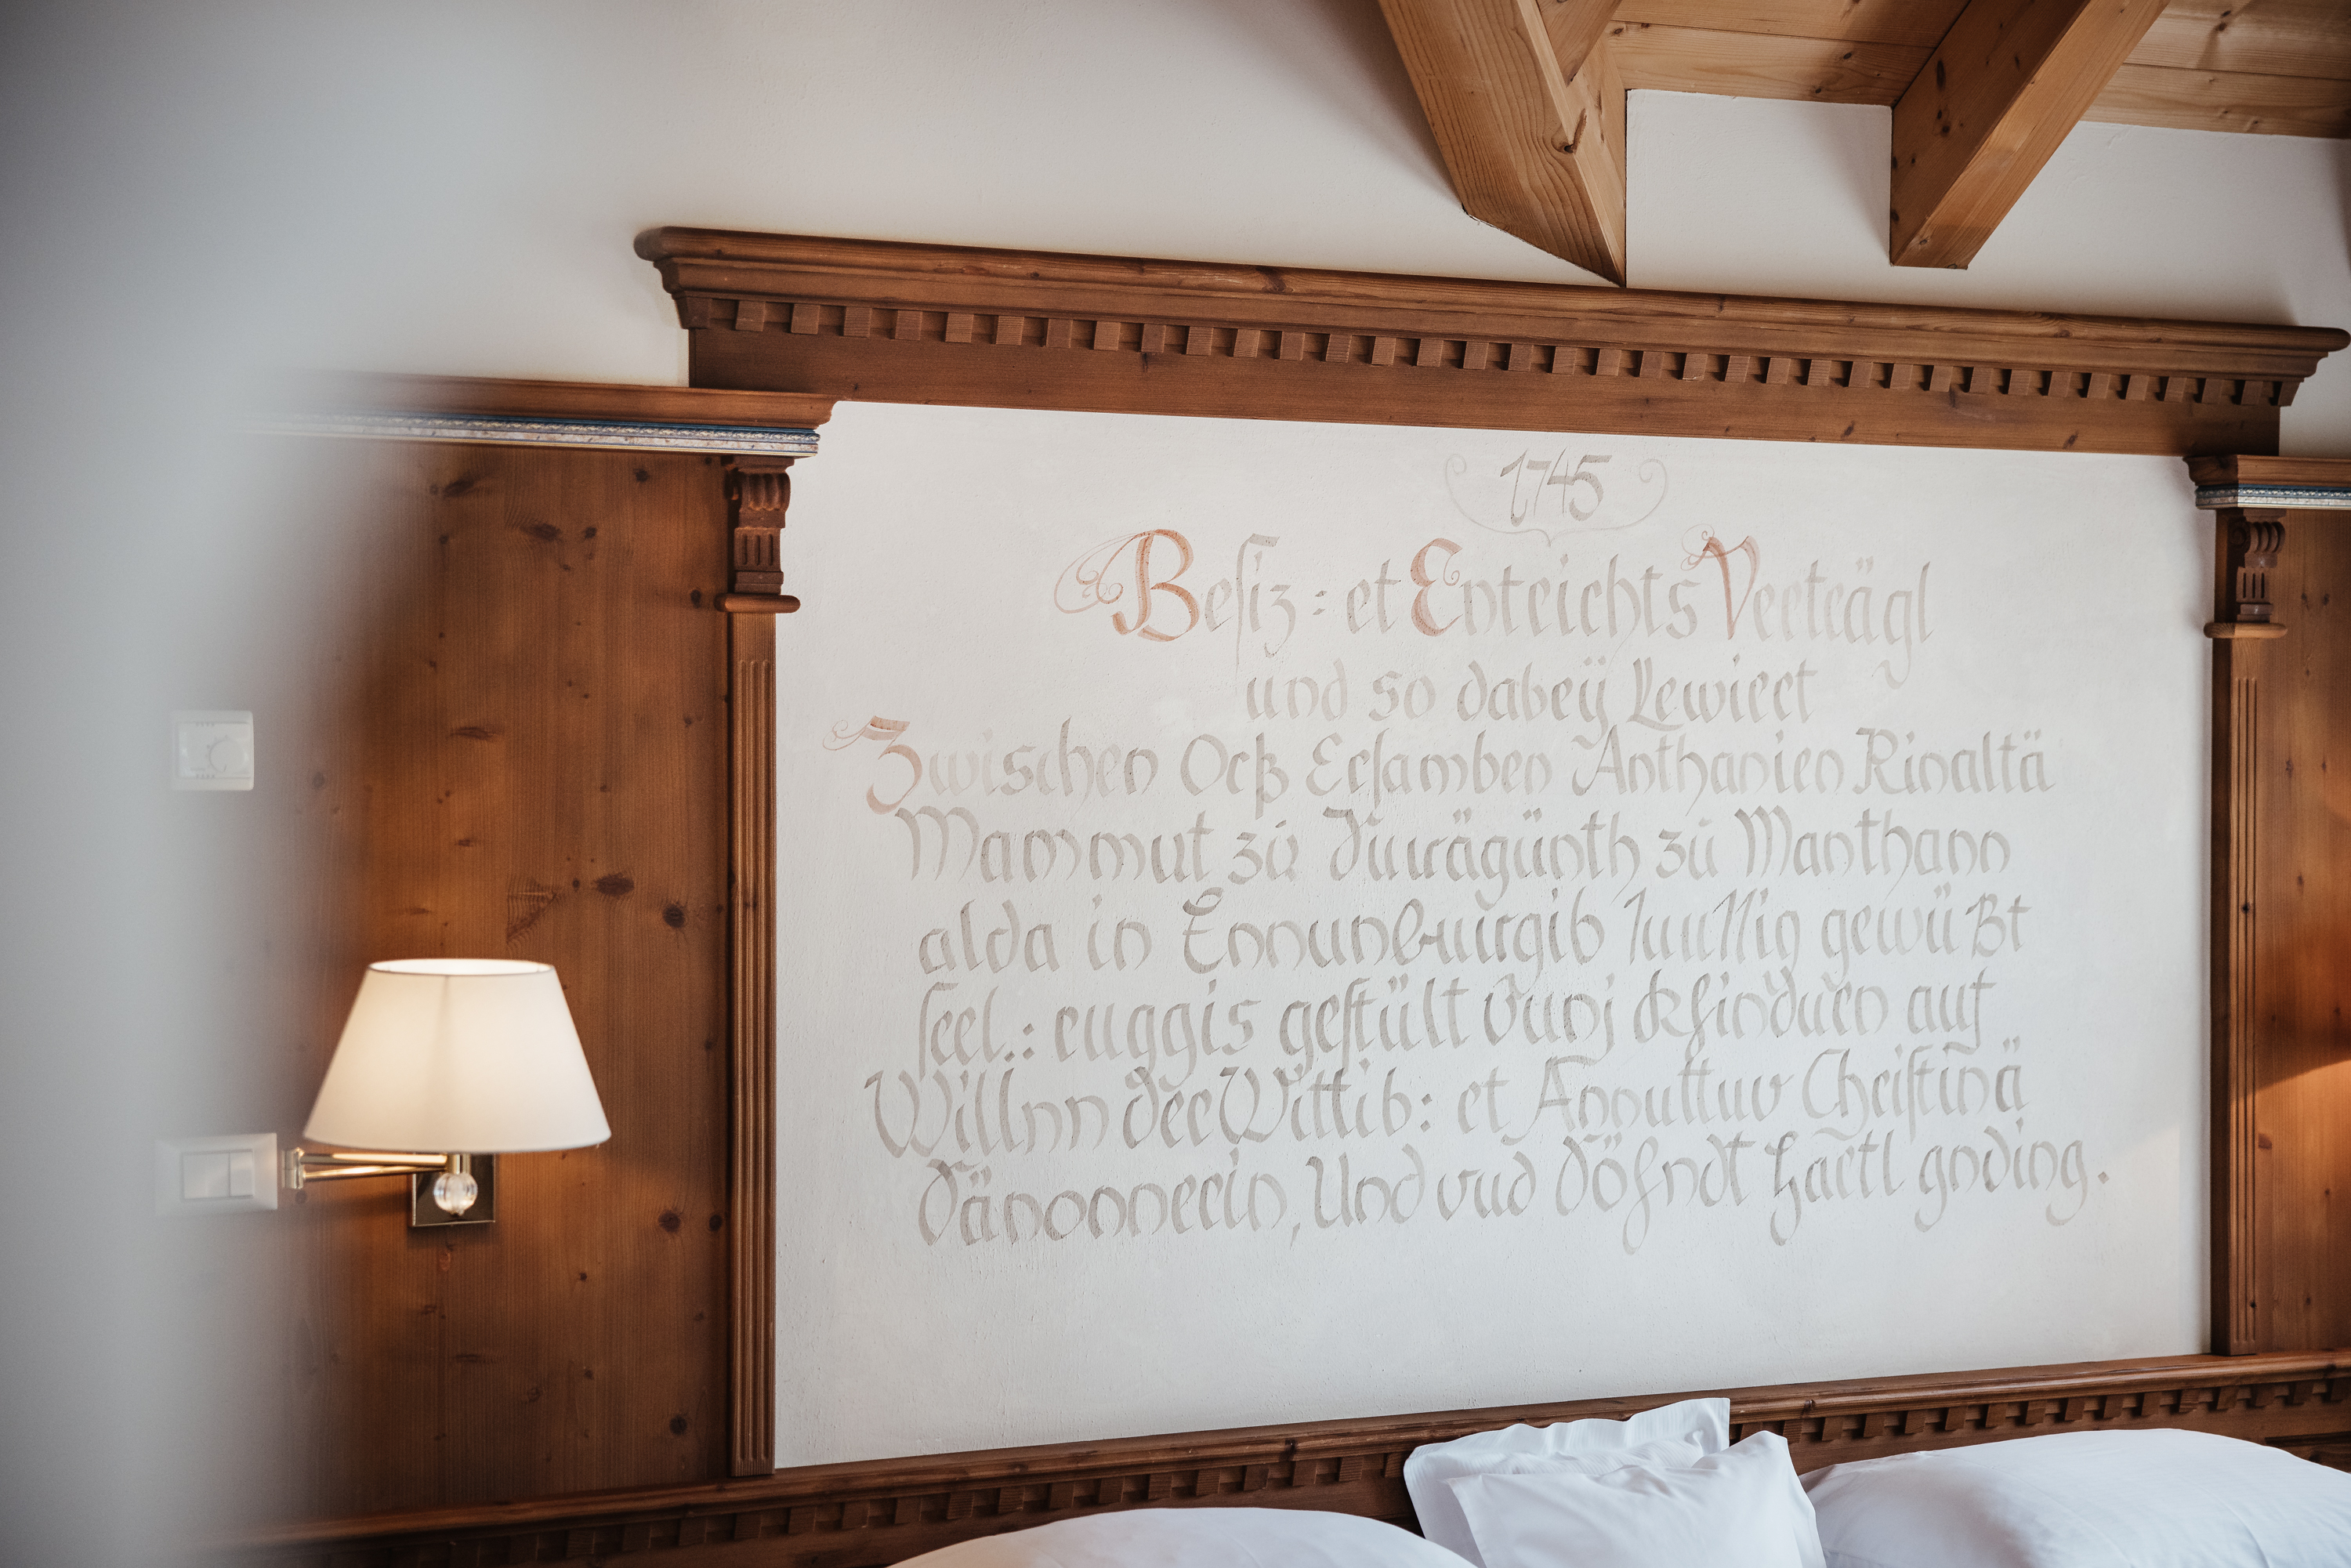 1745
Beſiz : et Enteichts Verträgl
und so dabeÿ Lewirct
Zwischen Ocß Erſamben Anthanien Rinaltä
Mammut zŭ zŭ Manthann
alda in Ennunburgib gewüßt
ſeel.: euggis geſtült auf
Willnn der Wittib: et Annuttuv Chriſtinä
Dänonnerin, Und vud haetl gnding.